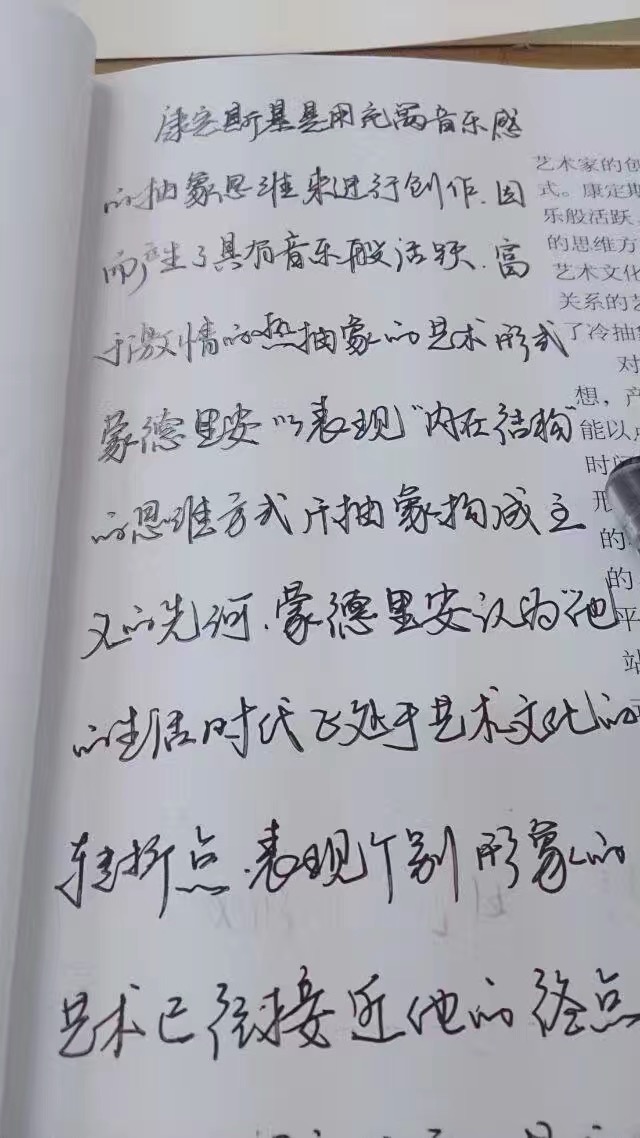 康定斯基是用充满音乐感
的抽象思维来进行创作.因
而产生了具有音乐般活跃.富
于激情的热抽象的艺术形式
蒙德里安以表现"内在结构"
的思维方式开抽象构成主
义的先河.蒙德里安认为"他
的生活时代飞处于艺术文化的
转折点.表现个别形象的
艺术已经接近他的终点
艺术家的创
式。康定斯
乐般活跃、
的思维方
艺术文化
关系的艺
了冷抽象
对
想，产
能以点
时间
形
的
的
平
站